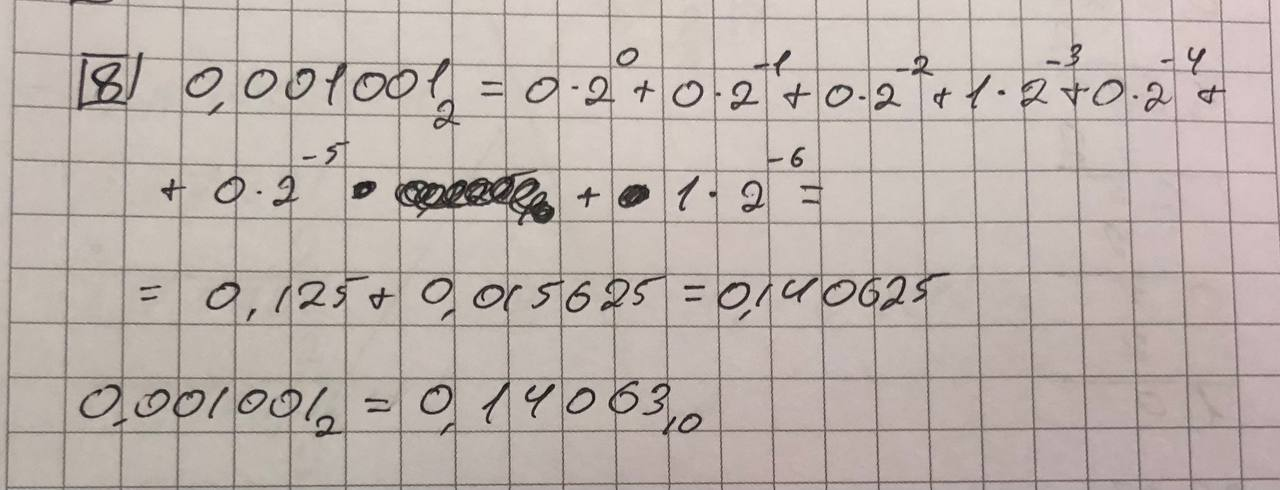 8) 0,001001₂ = 0·2⁰ + 0·2⁻¹ + 0·2⁻² + 1·2⁻³ + 0·2⁻⁴ +
+ 0·2⁻⁵ + 1·2⁻⁶ =
= 0,125 + 0,015625 = 0,140625
0,001001₂ = 0,14063₁₀